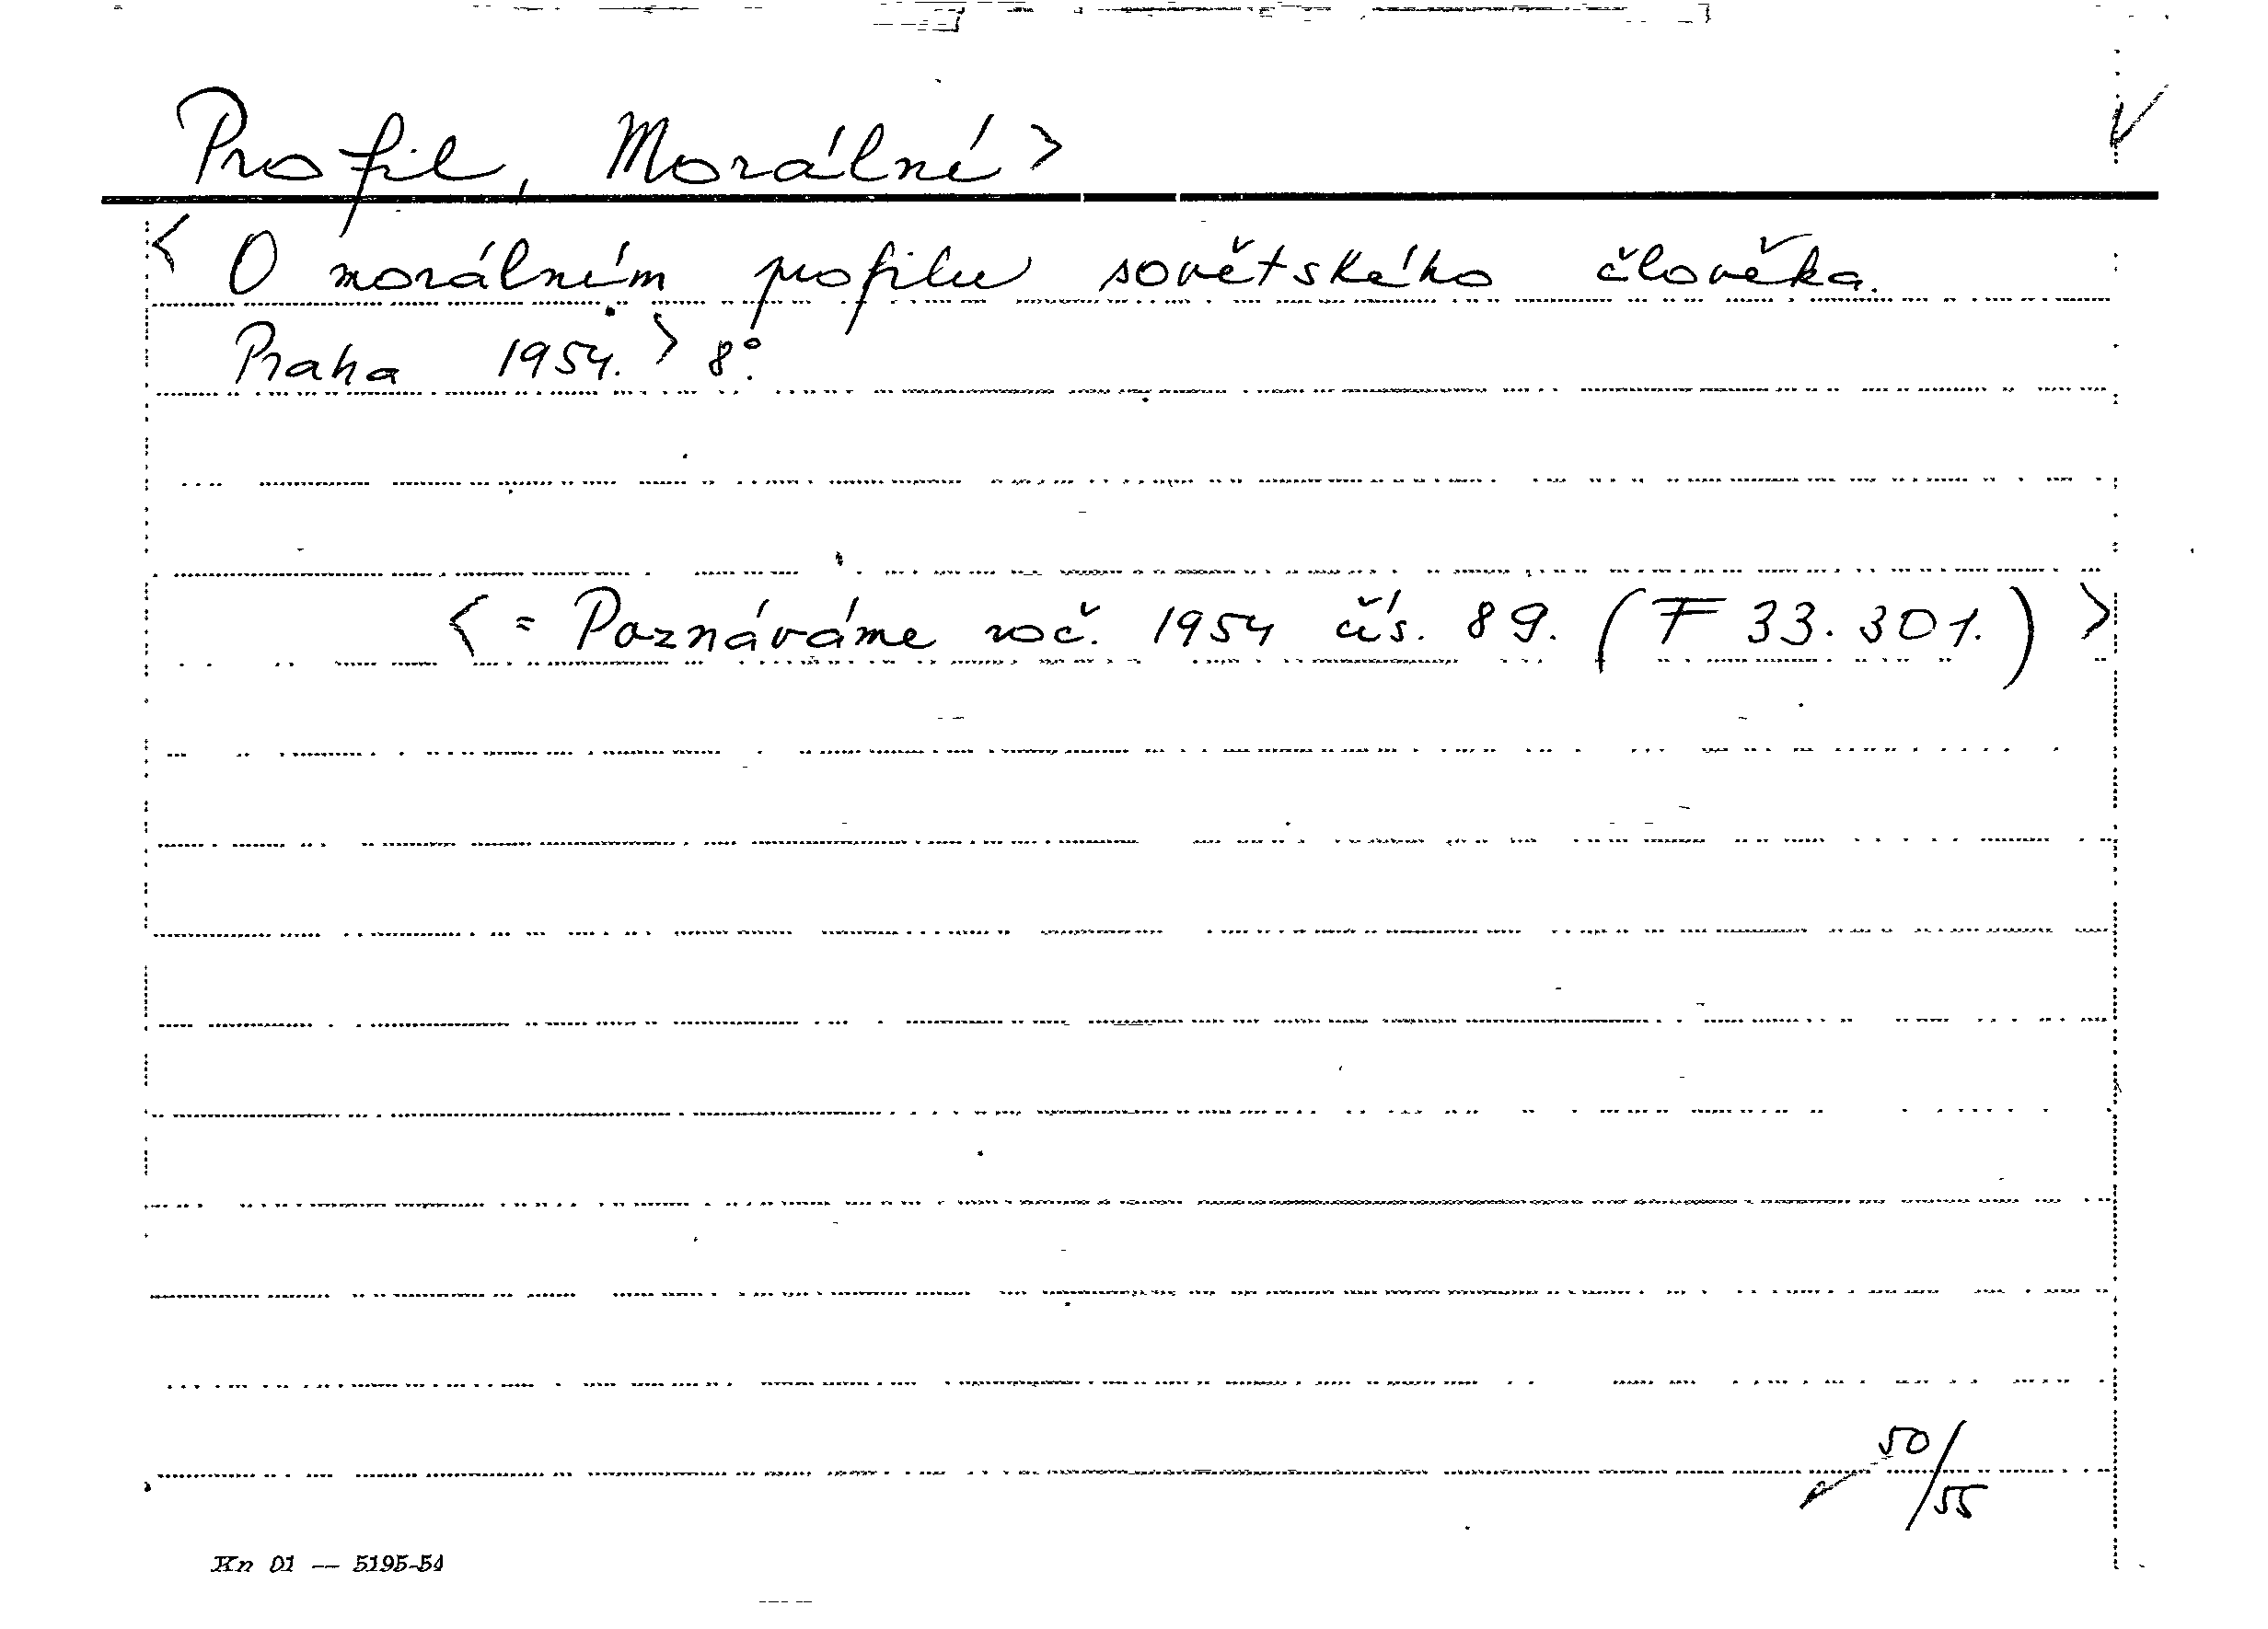 Profil, Morální >
< O morálním profilu sovětského člověka.
Praha 1954. > 8°.
< = Poznáváme roč. 1954 čís. 89. (F 33.301.) >
50/55
Kn 01 — 5195-54